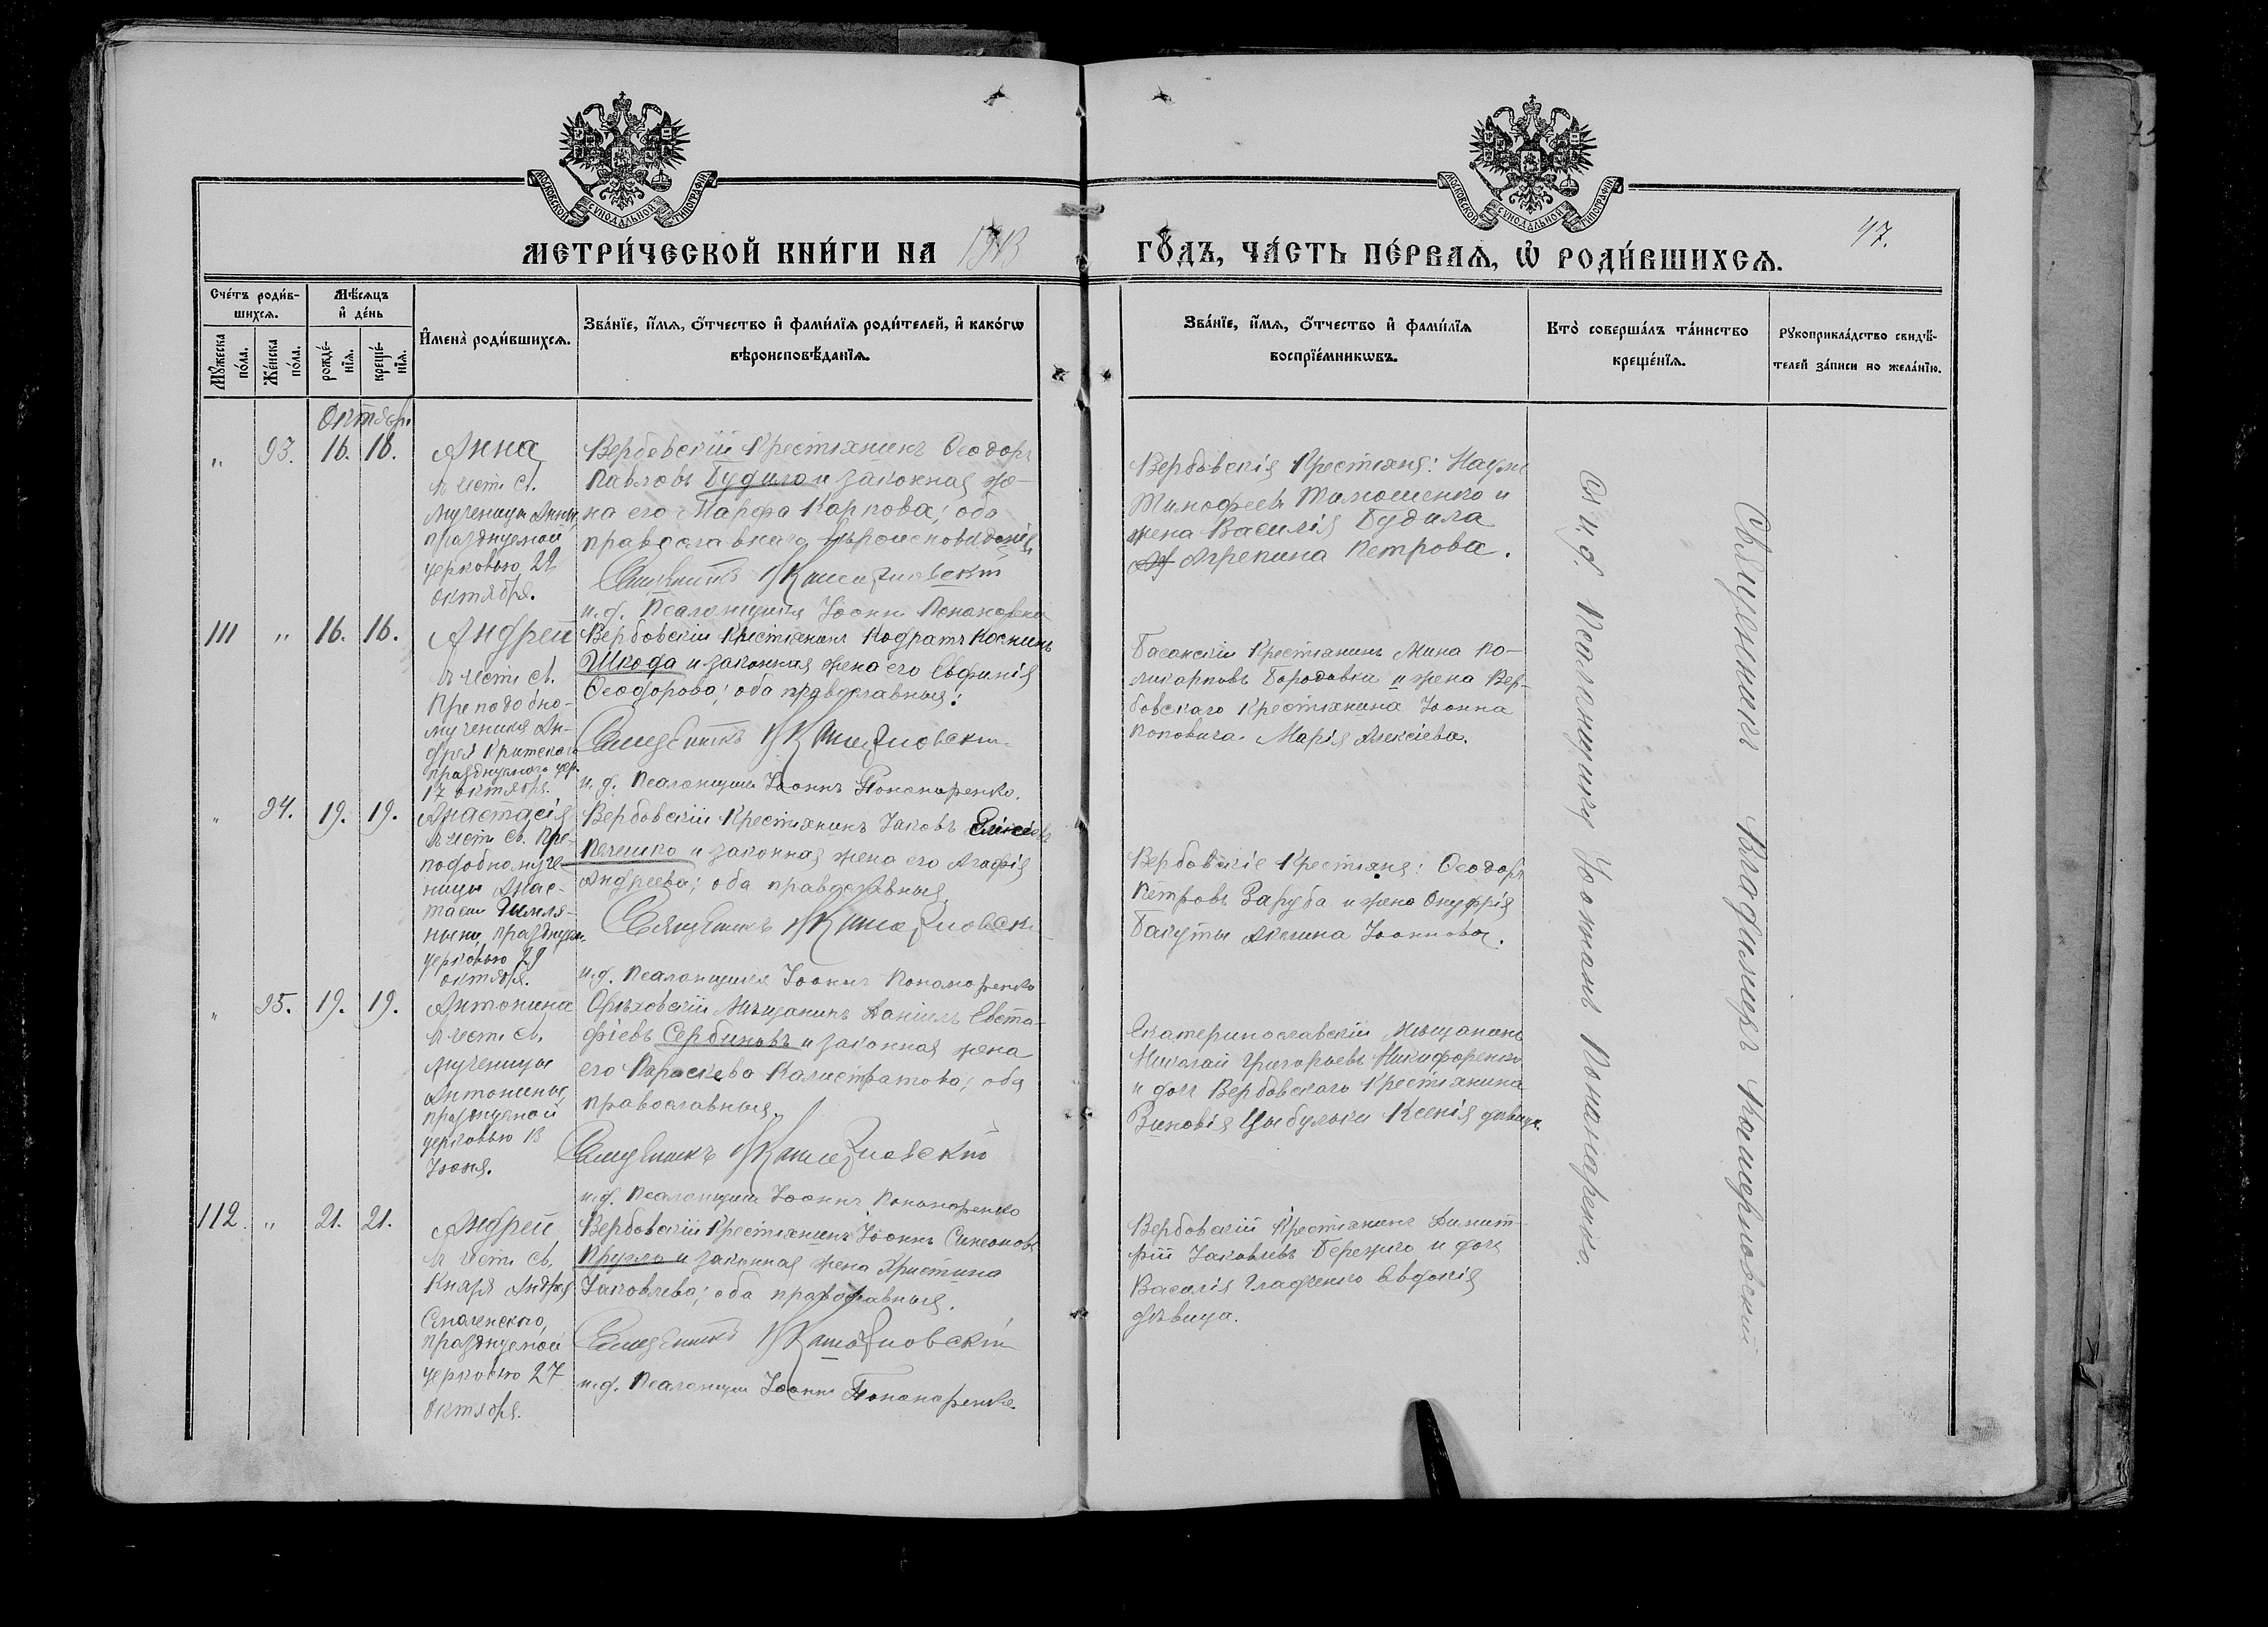 МОСКОВСКОЙ СѴНОДАЛЬНОЙ ТИПОГРАФІИ
МОСКОВСКОЙ СѴНОДАЛЬНОЙ ТИПОГРАФІИ
47.
МЕТРИ́ЧЕСКОЙ КНИ́ГИ НА 1913
ГО́ДЪ, ЧА́СТЬ ПЕ́РВАѦ, Ѡ҆ РОДИ́ВШИХСѦ.
Сче́тъ роди́в-
шихсѧ.
Мꙋ́жеска по́ла.
Же́нска по́ла.
Мѣ́сѧцъ
и҆ де́нь
рожде́-
нїѧ.
креще́-
нїѧ.
И҆мена̀ роди́вшихсѧ.
Зва́нїе, и҆́мѧ, ѻ҆́тчество и҆ фами́лїѧ роди́телей, и҆ како́гѡ
вѣроисповѣ́данїѧ.
Зва́нїе, и҆́мѧ, ѻ҆́тчество и҆ фами́лїѧ
воспрїе́мникѡвъ.
Кто̀ соверша́лъ та́инство
креще́нїѧ.
Рꙋкоприкла́дство свидѣ́-
телей за́писи по жела́нїю.
Октябрь
" 93. 16. 16.
Анна
въ честь св.
мученицы Анны,
празднуемой
церковью 22
октября.
Вербовскій крестьянинъ Ѳеодоръ
Павловъ Будило и законная же-
на его Марфа Карпова; оба
православнаго вѣроисповѣданія.
Священникъ В Кашедзиовскій
и.д. Псаломщика Іоаннъ Пономаренко
Вербовскія крестьяне: Наумъ
Тимофеевъ Тимошенко и
жена Василія Будила
Агрепина Петрова.
111 " 16. 16.
Андрей
въ честь св.
Преподобно-
мученика Ан-
дрея Критскаго
празднуемаго цер.
17 октября.
Вербовскій крестьянинъ Кодратъ Косминъ
Шкода и законная жена его Евфимія
Ѳеодорова; оба православныя.
Священникъ
и.д. Псаломщика Іоаннъ Пономаренко.
Басанскій крестьянинъ Мина По-
ликарповъ Бородавка и жена Вер-
бовскаго крестьянина Іоанна
Поповича Марія Алексіева.
" 94. 19. 19.
Анастасія
въ честь св. Пре-
подобномуче-
ницы Анас-
тасіи Римля-
ныни, празднуем.
церковью 29
октября.
Вербовскій крестьянинъ Іаковъ
Пелешко и законная жена его Агафія
Андреева; оба православныя.
Священникъ
и.д. Псаломщика Іоаннъ Пономаренко
Вербовскіе крестьяне: Ѳеодоръ
Петровъ Заруба и жена Онуфрія
Бакуты Акилина Іоаннова.
" 95. 19. 19.
Антонина
въ честь св.
мученицы
Антонины,
празднуемой
церковью 13
Іюня.
Орѣховскій мѣщанинъ Даніилъ Евста-
фіевъ Сербиновъ и законная жена
его Параскева Калистратова; оба
православныя.
Священникъ
и.д. Псаломщика Іоаннъ Пономаренко
Екатеринославскій мѣщанинъ
Николай Григорьевъ Никифоренко
и дочь Вербовскаго крестьянина
Зиновія Цыбульки Ксенія дѣвица.
112. " 21. 21.
Андрей
въ честь св.
Князя Андрея
Смоленскаго,
празднуемой
церковью 27
октября.
Вербовскій крестьянинъ Іоаннъ Симеоновъ
и законная жена Христина
Іаковлева; оба православныя.
Священникъ
и.д. Псаломщика Іоаннъ Пономаренко.
Вербовскій крестьянинъ Димит-
рій Іаковлевъ Бережко и дочь
Василія Гладченко Евдокія
дѣвица.
Священникъ Владимиръ
Съ и.д. Псаломщикомъ Іоанномъ Пономаренко.